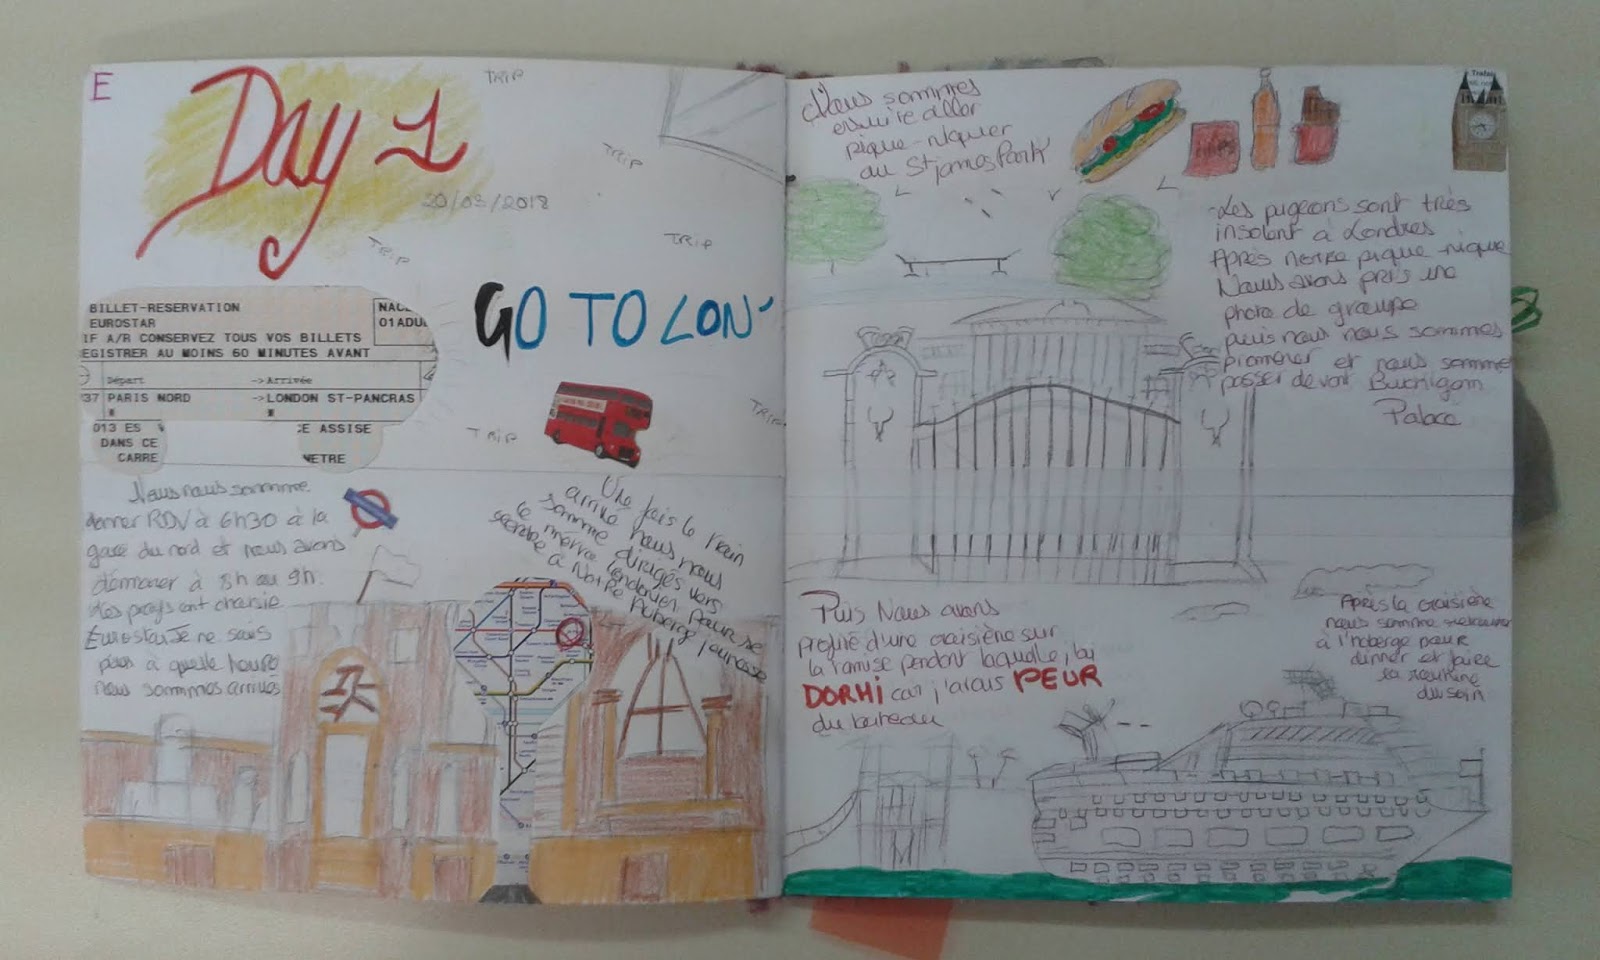 E
Day 1
20/03/2018
TRIP
TRIP
TRIP
TRIP
TRIP
TRIP
GO TO LON
BILLET-RESERVATION
EUROSTAR
IF A/R CONSERVEZ TOUS VOS BILLETS
EGISTRER AU MOINS 60 MINUTES AVANT
01ADU
Départ ->Arrivée
37 PARIS NORD ->LONDON ST-PANCRAS
013 ES
DANS CE
CARRE
CE ASSISE
METRE
Nous nous sommme
donner RDV à 6h30 à la
gare du nord et nous avons
démarer à 8h ou 9h.
Les profs ont choisie
Eurostar Je ne sais
pas à quelle heure
nous sommmes arrivés
Une fois le train
arrivé nous nous
somme dirigés vers
le métro londonien pour se
rendre à Notre Auberge jeunesse
Nous sommes
ensuite aller
pique-niquer
au St james Park
-Les pigeons sont très
insolant à Londres
Après notre pique-nique
Nous avons pris une
photo de groupe
puis nous nous sommes
promener et nous somme
passer devant Buchigam
Palace
Puis Nous avons
profité d'une croisière sur
la tamise pendant laquelle j'ai
DORMI car j'avais PEUR
du bateau
Après la croisière
nous somme retourner
à l'auberge pour
dinner et faire
la routine
du soir